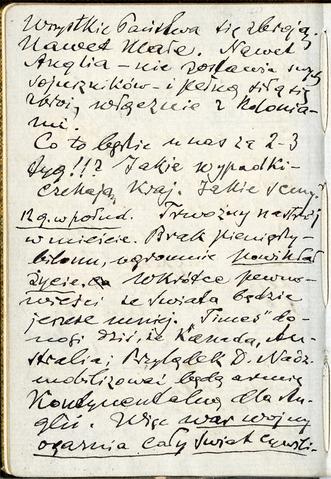 Wszystkie Państwa się zbroją.
Nawet Małe. Nawet
Anglia – nie zostawia swych
sojuszników – i pełną siłą się
zbroi, włącznie z kolonia-
mi.
Co to będzie u nas za 2–3
tyg!!? Jakie wypadki
czekają Kraj. Jakie sceny?
12 g. w połud. Trwożny nastrój
w mieście. Brak pieniędzy –
bilonu, ogromnie powikłał
życie. Wkrótce pewno
wieści ze świata będzie
jeszcze mniej. "Times" do-
nosi dziś, że Kanada, Au-
stralia i Przylądek D. Nadz.
mobilizować będą armię
Kontynentalną dla An-
glii. Więc war wojny
ogarnia cały świat cywili-